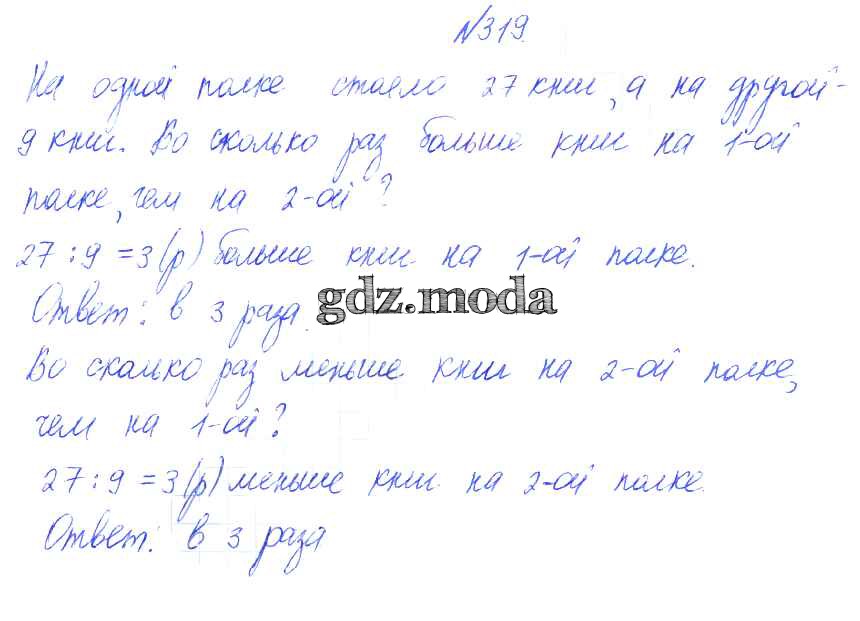 №319.
На одной полке стояло 27 книг, а на другой -
9 книг. Во сколько раз больше книг на 1-ой
полке, чем на 2-ой?
27 : 9 = 3 (р) больше книг на 1-ой полке.
Ответ: в 3 раза.
gdz.moda
Во сколько раз меньше книг на 2-ой полке,
чем на 1-ой?
27 : 9 = 3 (р) меньше книг на 2-ой полке.
Ответ: в 3 раза